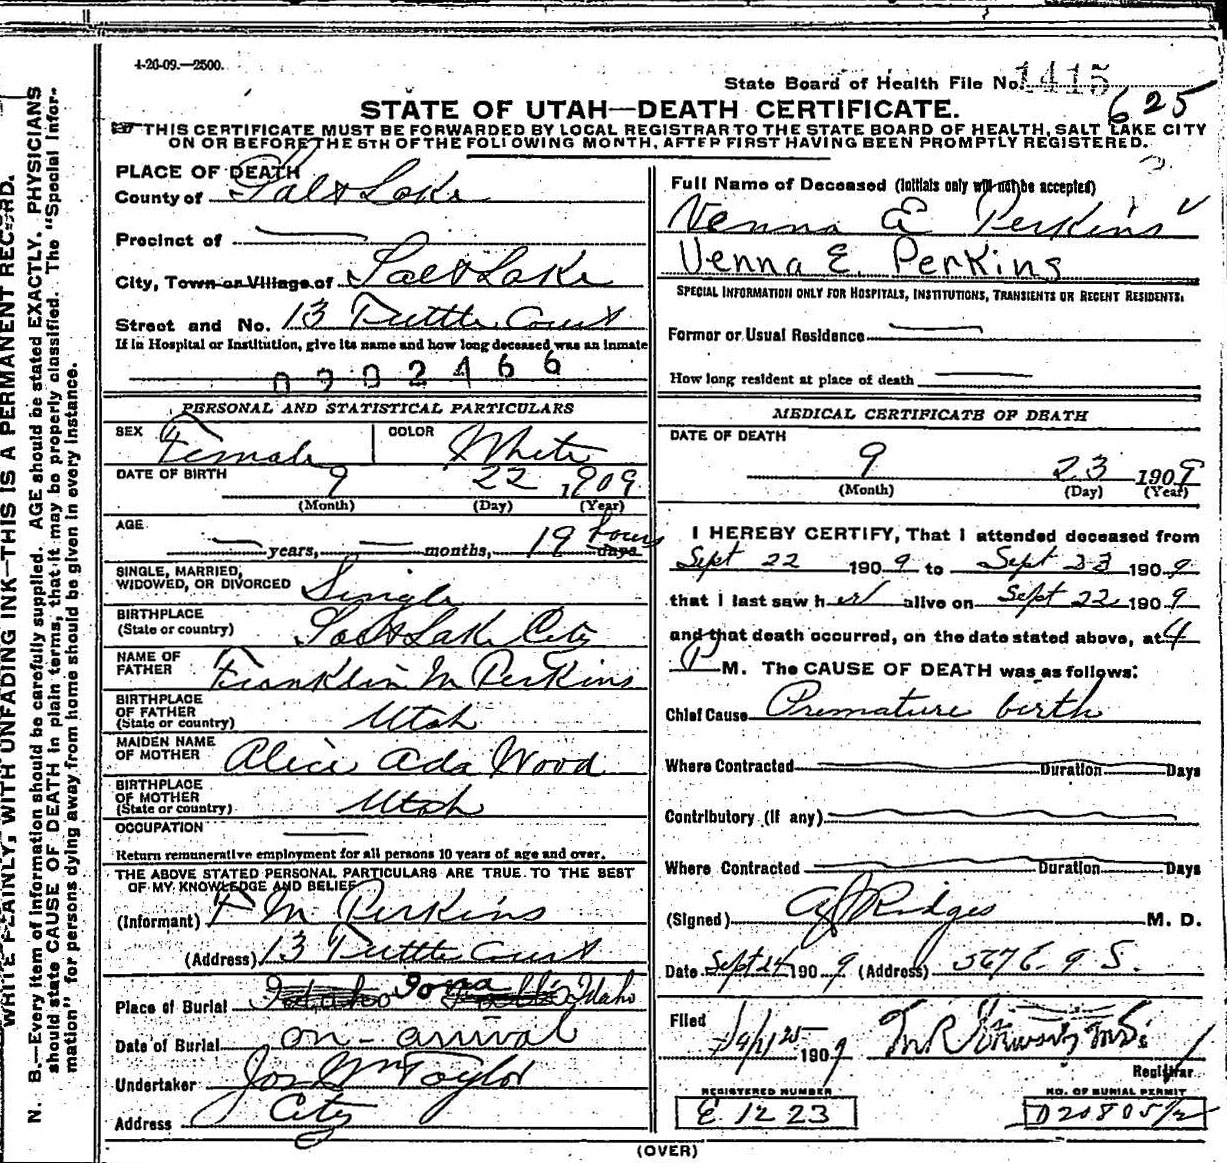 4-26-09.—2500.
State Board of Health File No. 1415
625
STATE OF UTAH—DEATH CERTIFICATE.
THIS CERTIFICATE MUST BE FORWARDED BY LOCAL REGISTRAR TO THE STATE BOARD OF HEALTH, SALT LAKE CITY
ON OR BEFORE THE 5TH OF THE FOLLOWING MONTH, AFTER FIRST HAVING BEEN PROMPTLY REGISTERED.
WRITE PLAINLY, WITH UNFADING INK—THIS IS A PERMANENT RECORD.
N. B.—Every item of information should be carefully supplied. AGE should be stated EXACTLY. PHYSICIANS
should state CAUSE OF DEATH in plain terms, that it may be properly classified. The "Special Infor-
mation" for persons dying away from home should be given in every instance.
PLACE OF DEATH
County of Salt Lake
Precinct of
City, Town or Village of Salt Lake
Street and No. 13 Tuttle Court
If in Hospital or Institution, give its name and how long deceased was an inmate
0902466
PERSONAL AND STATISTICAL PARTICULARS
SEX Female COLOR White
DATE OF BIRTH 9 22 1909
(Month) (Day) (Year)
AGE
years, months, 19 hours days
SINGLE, MARRIED,
WIDOWED, OR DIVORCED Single
BIRTHPLACE
(State or country) Salt Lake City
NAME OF
FATHER Franklin M Perkins
BIRTHPLACE
OF FATHER
(State or country) Utah
MAIDEN NAME
OF MOTHER Alice Ada Wood
BIRTHPLACE
OF MOTHER
(State or country) Utah
OCCUPATION
Return remunerative employment for all persons 10 years of age and over.
THE ABOVE STATED PERSONAL PARTICULARS ARE TRUE TO THE BEST
OF MY KNOWLEDGE AND BELIEF
(Informant) F M Perkins
(Address) 13 Tuttle Court
Place of Burial Idaho Iona Falls Idaho
Date of Burial on-arrival
Undertaker Jos Wm Taylor
Address City
Full Name of Deceased (Initials only will not be accepted)
Venna E Perkins
Venna E. Perkins
SPECIAL INFORMATION ONLY FOR HOSPITALS, INSTITUTIONS, TRANSIENTS OR RECENT RESIDENTS.
Former or Usual Residence
How long resident at place of death
MEDICAL CERTIFICATE OF DEATH
DATE OF DEATH
9 23 1909
(Month) (Day) (Year)
I HEREBY CERTIFY, That I attended deceased from
Sept 22 1909 to Sept 23 1909
that I last saw her alive on Sept 22 1909
and that death occurred, on the date stated above, at 4
P M. The CAUSE OF DEATH was as follows:
Chief Cause Premature birth
Where Contracted Duration Days
Contributory (if any)
Where Contracted Duration Days
(Signed) A J Ridges M. D.
Date Sept 24 1909 (Address) 567 E. 9 S.
Filed 1909
Registrar
REGISTERED NUMBER
E 1223
NO. OF BURIAL PERMIT
D20805/2
(OVER)